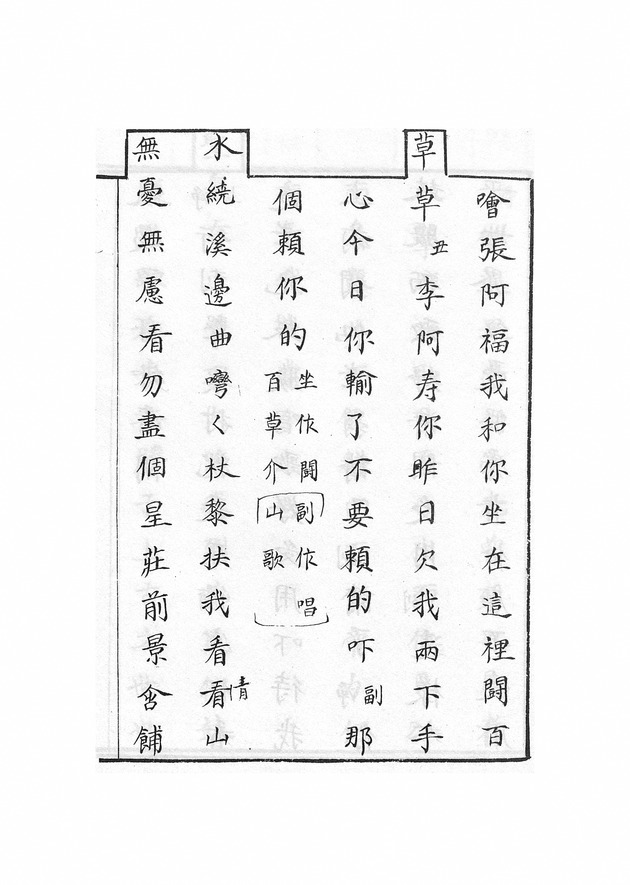 噲張阿福我和你坐在這裡鬪百
草草丑李阿寿你昨日欠我兩下手
心今日你輸了不要頼的吓副那
個頼你的坐作鬪百草介副作唱山歌
水繞溪邊曲彎く杖黎扶我看看情山
無憂無慮看勿盡個星莊前景舍舖